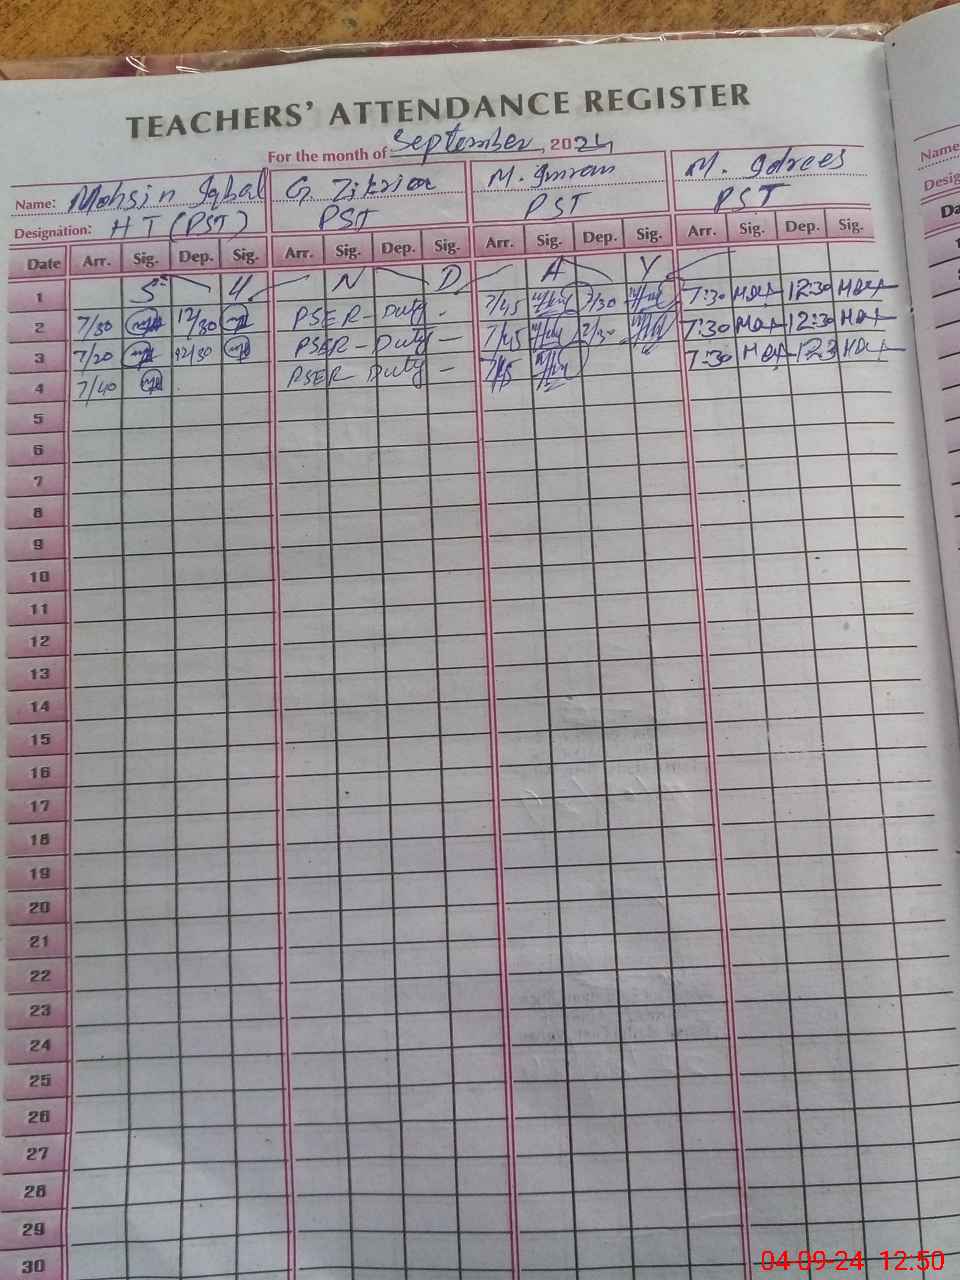 TEACHERS' ATTENDANCE REGISTER
For the month of September, 2024
Name: Mohsin Iqbal G. Zikria M. Imran M. Idrees Name
Designation: HT (PST) PST PST PST Desig
Date Arr. Sig. Dep. Sig. Arr. Sig. Dep. Sig. Arr. Sig. Dep. Sig. Arr. Sig. Dep. Sig. Da
1 S U N D A Y
2 7/30 12/30 PSER - Duty - 7/45 7:30 12:30
3 7/20 12/30 PSER - Duty - 7/45 7:30 12:30
4 7/40 PSER - Duty - 7/45 7:30 12:3
5
6
7
8
9
10
11
12
13
14
15
16
17
18
19
20
21
22
23
24
25
26
27
28
29
30
04-09-24 12.50